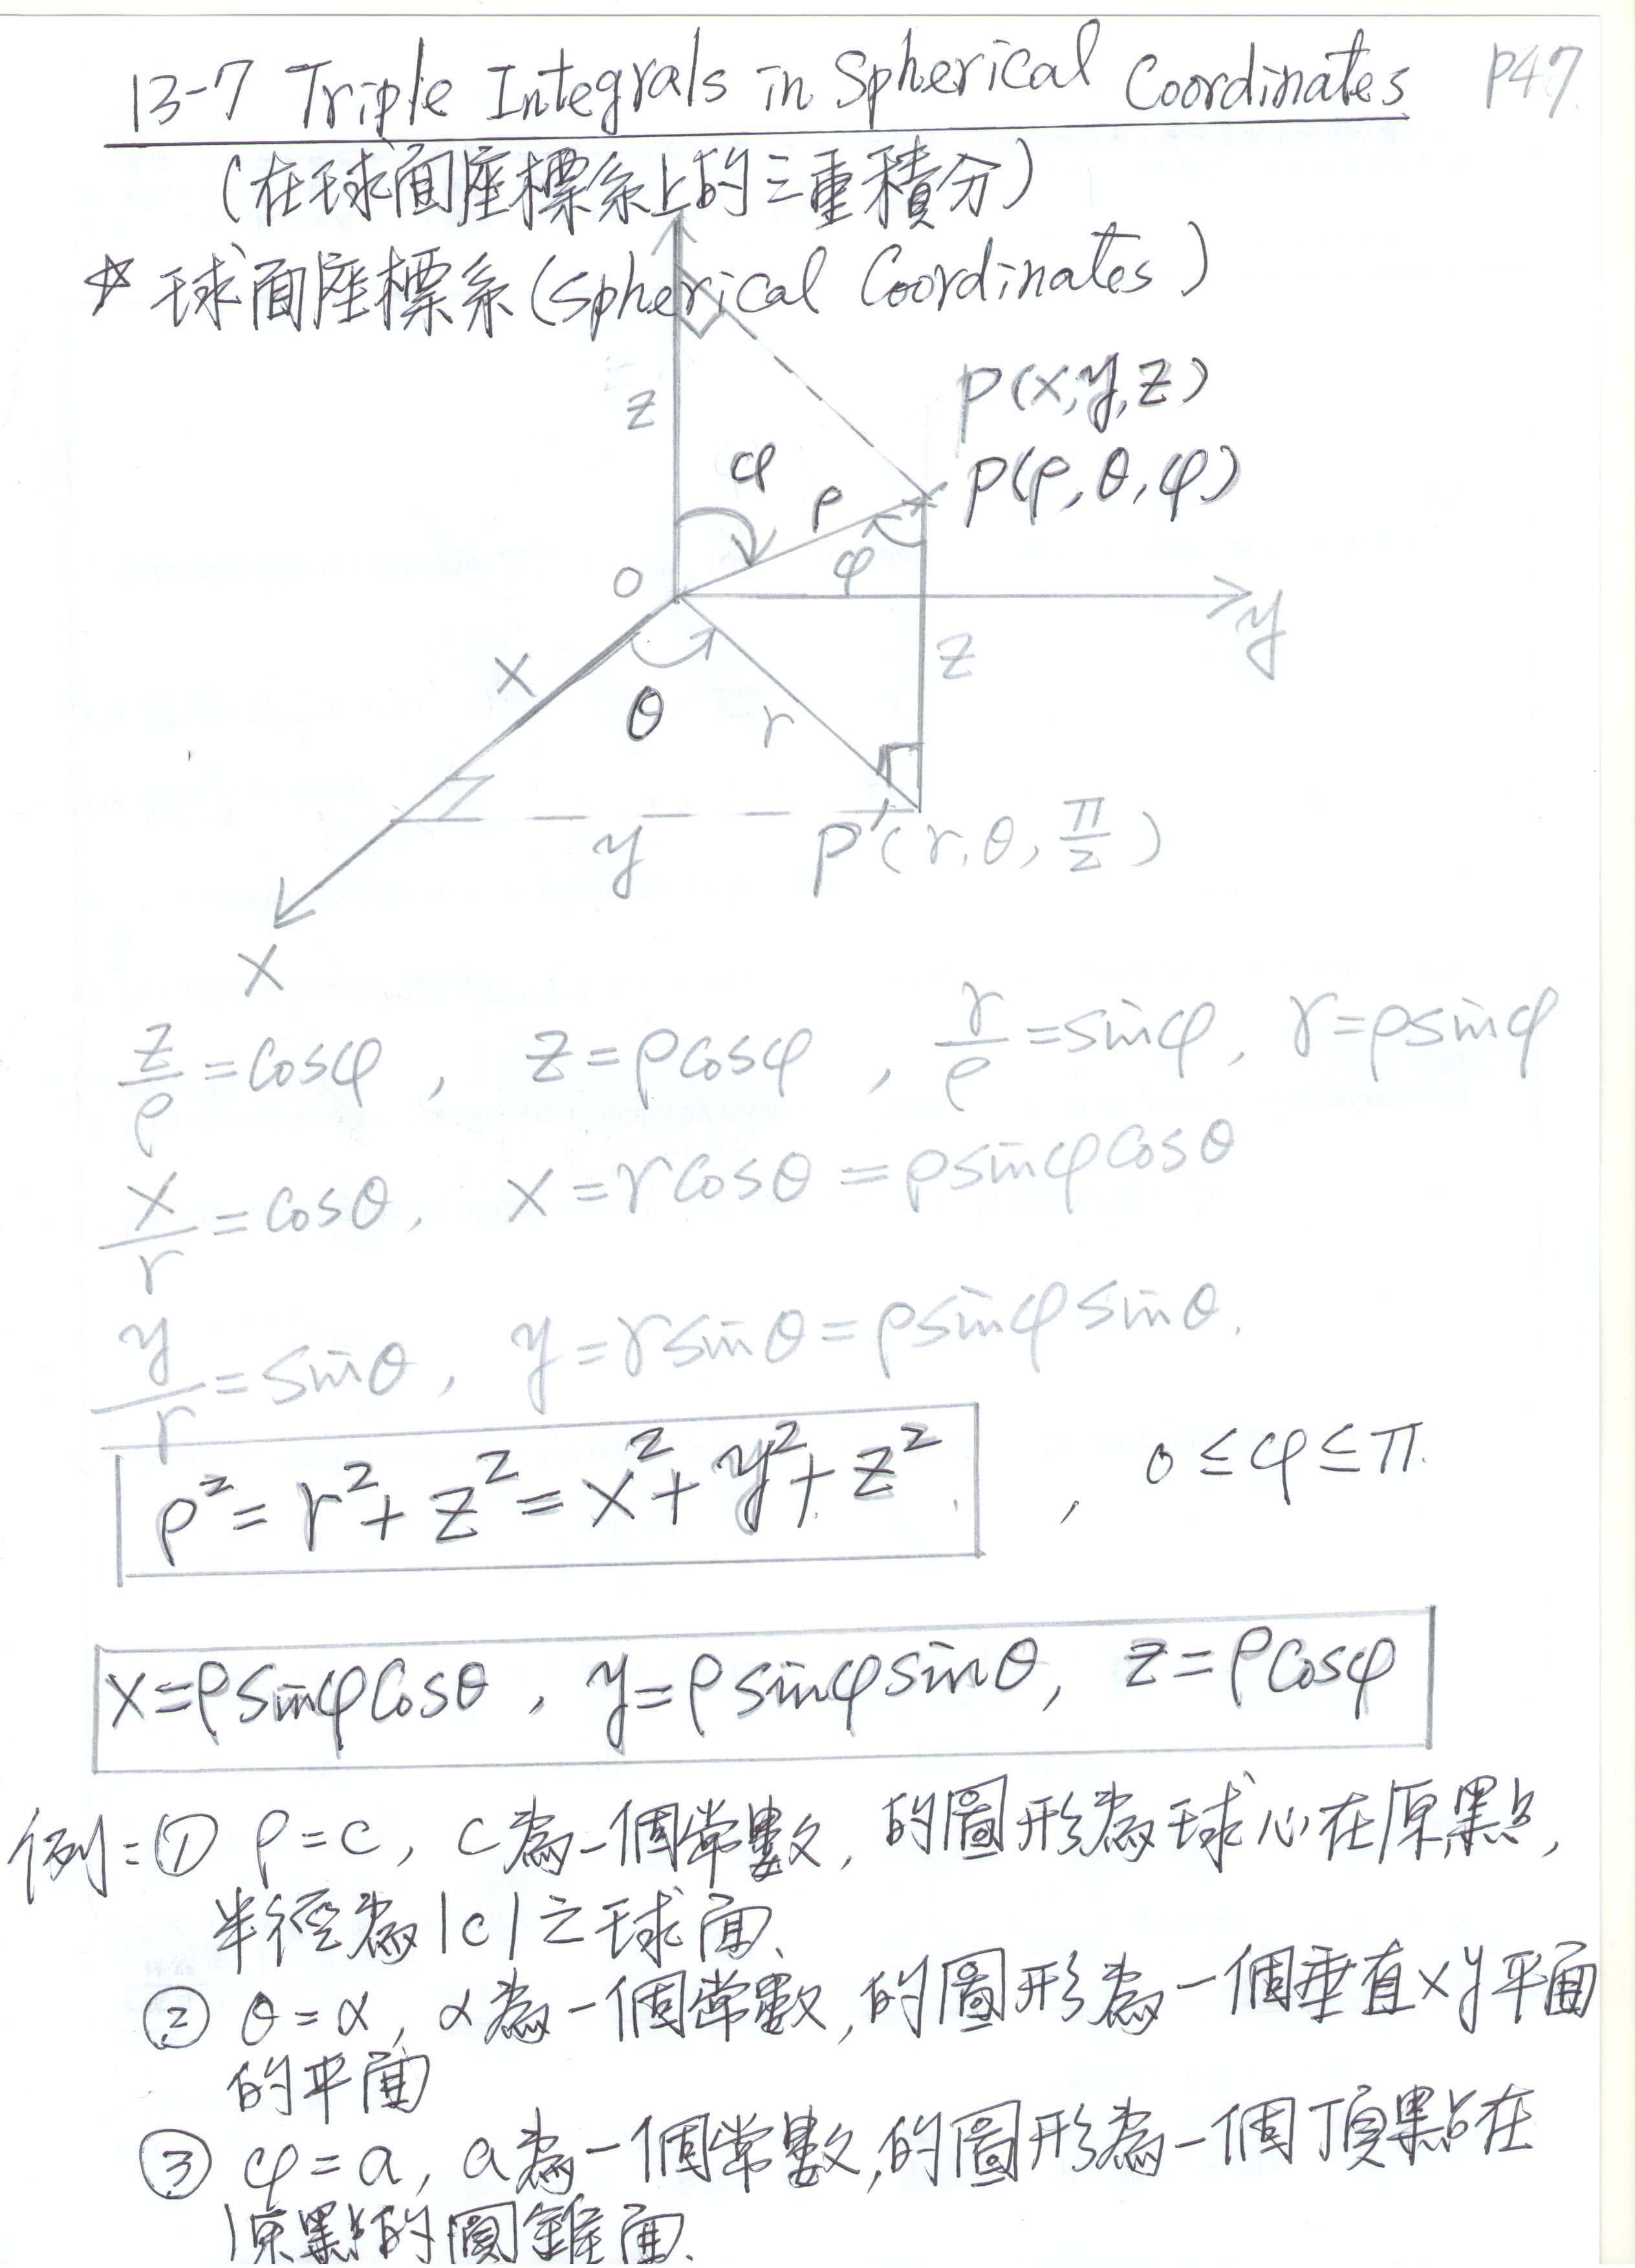 13-7 Triple Integrals in Spherical Coordinates P47
(在球面座標系上的三重積分)
☆ 球面座標系(Spherical Coordinates)
z
P(x,y,z)
φ
P(ρ,θ,φ)
ρ
φ
O
y
z
x
θ
r
y
P'(r,θ,π/2)
x
z/ρ=cosφ, z=ρcosφ, r/ρ=sinφ, r=ρsinφ
x/r=cosθ, x=rcosθ=ρsinφcosθ
y/r=sinθ, y=rsinθ=ρsinφsinθ.
ρ²=r²+z²=x²+y²+z². , 0≤φ≤π.
x=ρsinφcosθ, y=ρsinφsinθ, z=ρcosφ
例:① ρ=c, c為一個常數,的圖形為球心在原點,
半徑為|c|之球面.
② θ=α, α為一個常數,的圖形為一個垂直xy平面
的平面
③ φ=a, a為一個常數,的圖形為一個頂點在
原點的圓錐面.